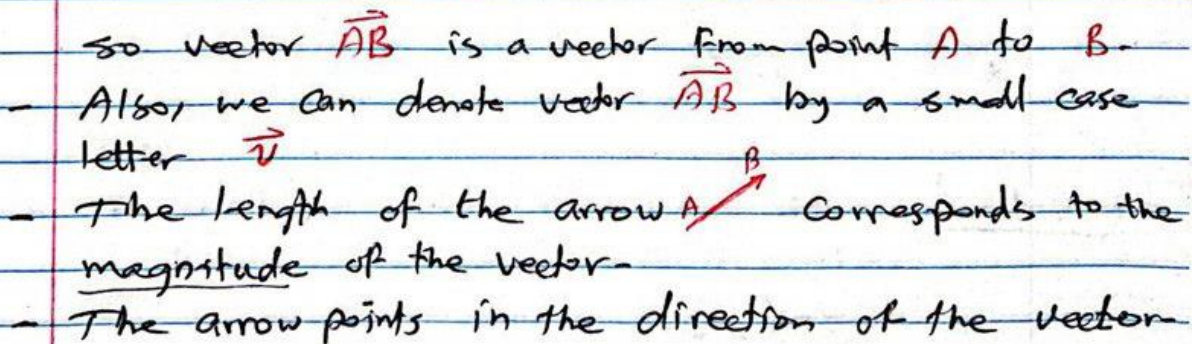 so vector AB is a vector from point A to B.
- Also, we can denote vector AB by a small case
letter v
- The length of the arrow A B corresponds to the
magnitude of the vector.
- The arrow points in the direction of the vector